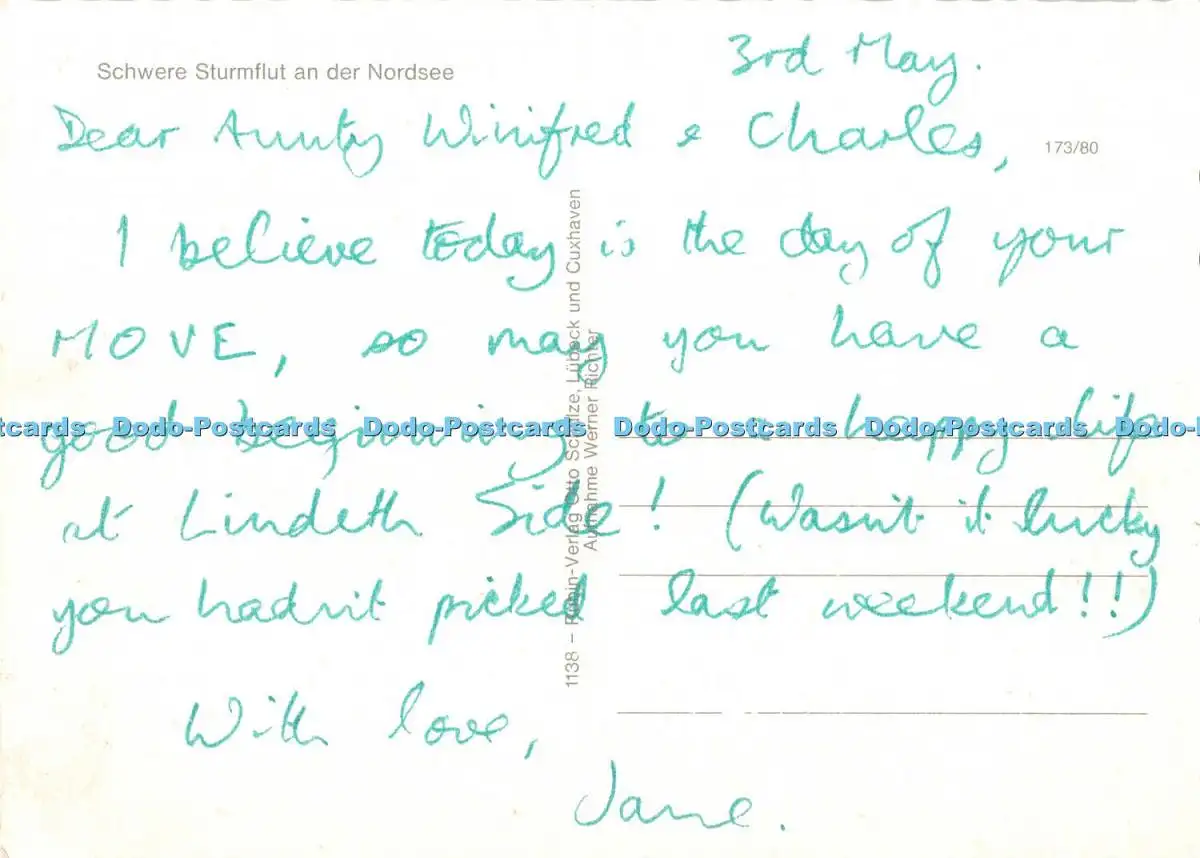 Schwere Sturmflut an der Nordsee
3rd May.
Dear Aunty Winifred & Charles,
173/80
I believe today is the day of your
MOVE, so may you have a
good beginning to a happy life
at Lindeth Side! (Wasn't it lucky
you hadn't picked last weekend!!)
With love,
Jane.
1138 – Rubin-Verlag Otto Schulze, Lübeck und Cuxhaven
Aufnahme Werner Richter
Dodo-Postcards Dodo-Postcards Dodo-Postcards Dodo-Postcards